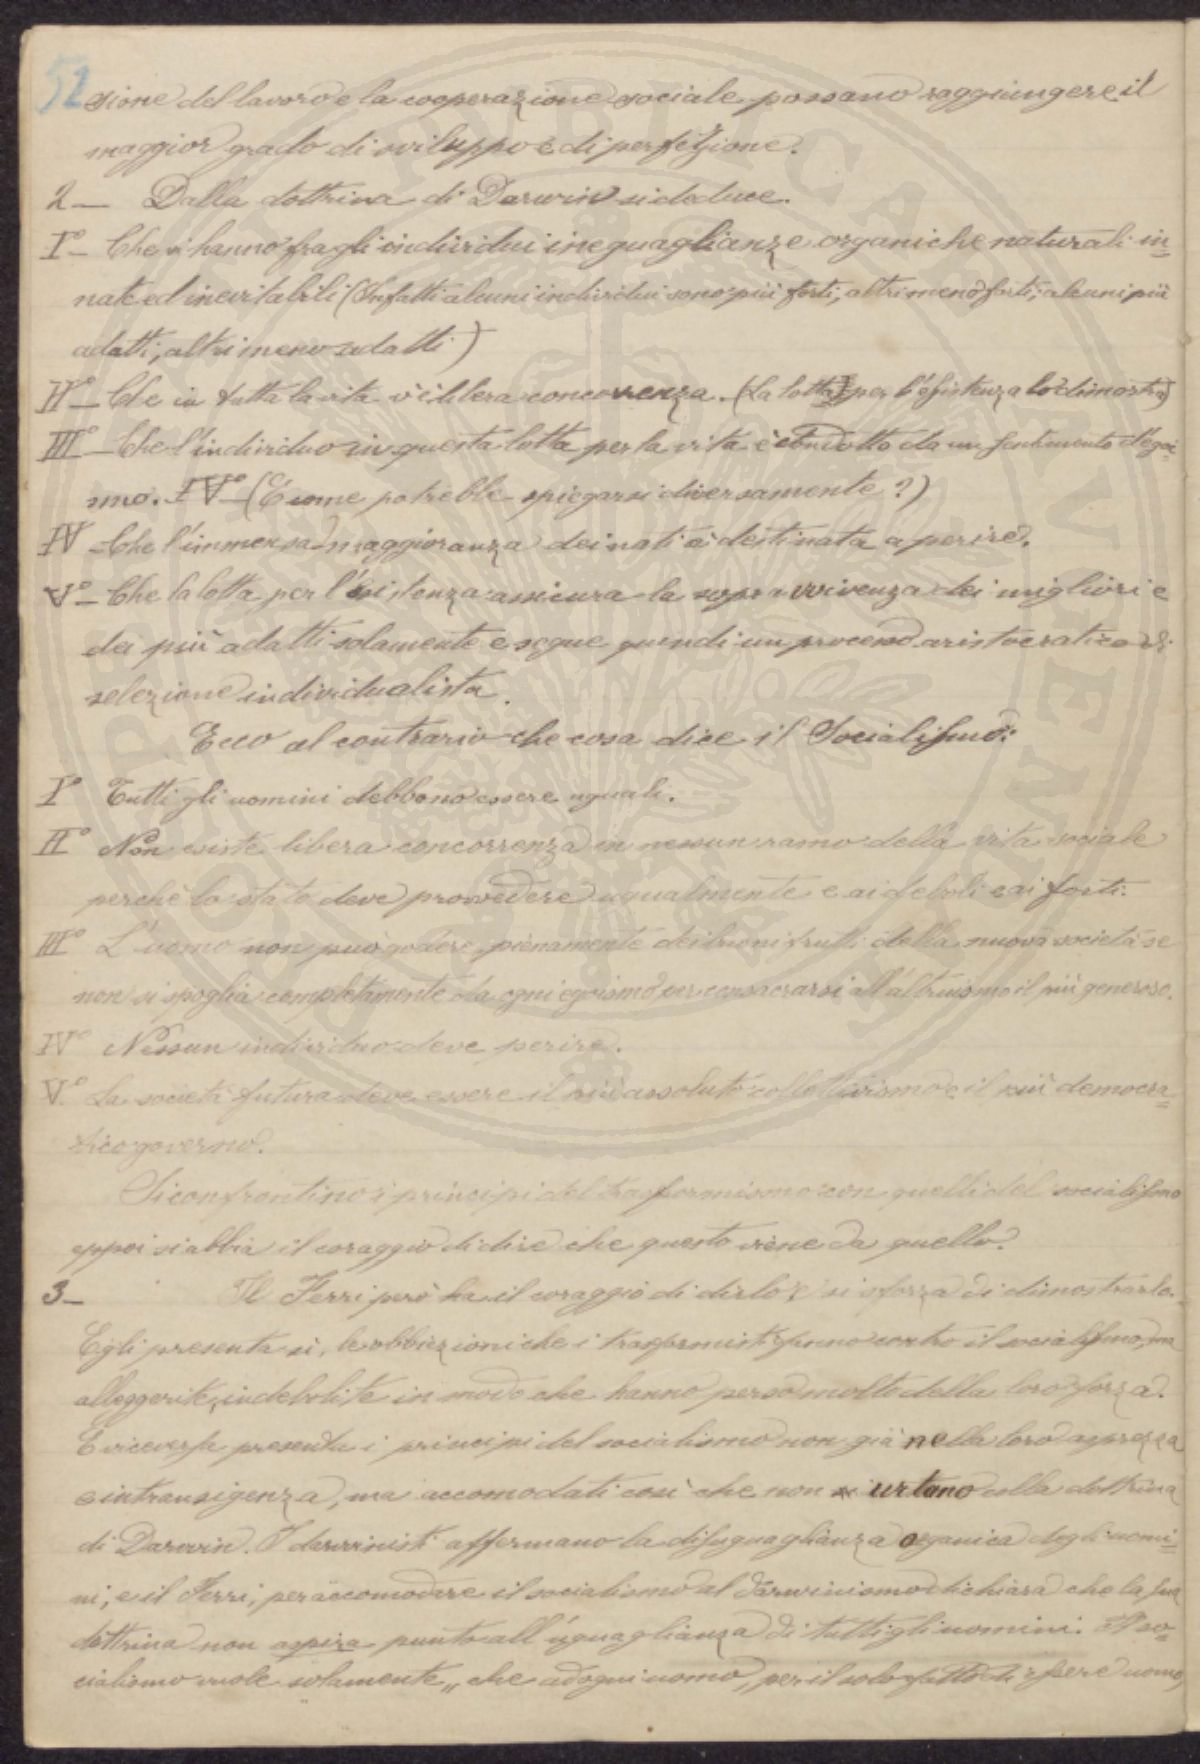 52
sione del lavoro e la cooperazione sociale possano raggiungere il
maggior grado di sviluppo e di perfezione.
2 — Dalla dottrina di Darwin si deduce.
I° — Che vi hanno fra gli individui ineguaglianze organiche naturali in=
nate ed inevitabili (Infatti alcuni individui sono più forti, altri meno forti; alcuni più
adatti, altri meno adatti)
II° — Che in tutta la vita v'è libera concorrenza. (La lotta per l'esistenza lo dimostra)
III° — Che l'individuo in questa lotta per la vita è condotto da un sentimento d'egoi=
smo. IV° — (E come potrebbe spiegarsi diversamente?)
IV — Che l'immensa maggioranza dei nati è destinata a perire.
V° — Che la lotta per l'esistenza assicura la sopravvivenza dei migliori e
dei più adatti solamente e segue quindi un processo aristocratico di
selezione individualista.
Ecco al contrario che cosa dice il Socialismo:
I° Tutti gli uomini debbono essere uguali.
II° Non esiste libera concorrenza in nessun ramo della vita sociale
perchè lo stato deve provvedere ugualmente e ai deboli e ai forti.
III° L'uomo non può godere pienamente dei buoni frutti della nuova società se
non si spoglia completamente da ogni egoismo per consacrarsi all'altruismo il più generoso.
IV° Nessun individuo deve perire.
V.° La società futura deve essere il più assoluto collettivismo e il più democra=
tico governo.
Si confrontino i principi del trasformismo con quelli del socialismo
eppoi si abbia il coraggio di dire che questo viene da quello.
3 — Il Ferri però ha il coraggio di dirlo e si sforza di dimostrarlo.
Egli presenta sì, le obbiezioni che i trasformisti fanno contro il socialismo, ma
alleggerite, indebolite in modo che hanno perso molto della loro forza.
E viceversa presenta i principi del socialismo non già nella loro asprezza
e intransigenza, ma accomodati così che non urtano colla dottrina
di Darwin. I darwinisti affermano la disuguaglianza organica degli uomi=
ni, e il Ferri, per accomodare il socialismo al darwinismo dichiara che la sua
dottrina non aspira punto all'uguaglianza di tutti gli uomini. Il so=
cialismo vuole solamente „ che ad ogni uomo, per il solo fatto di essere uomo,